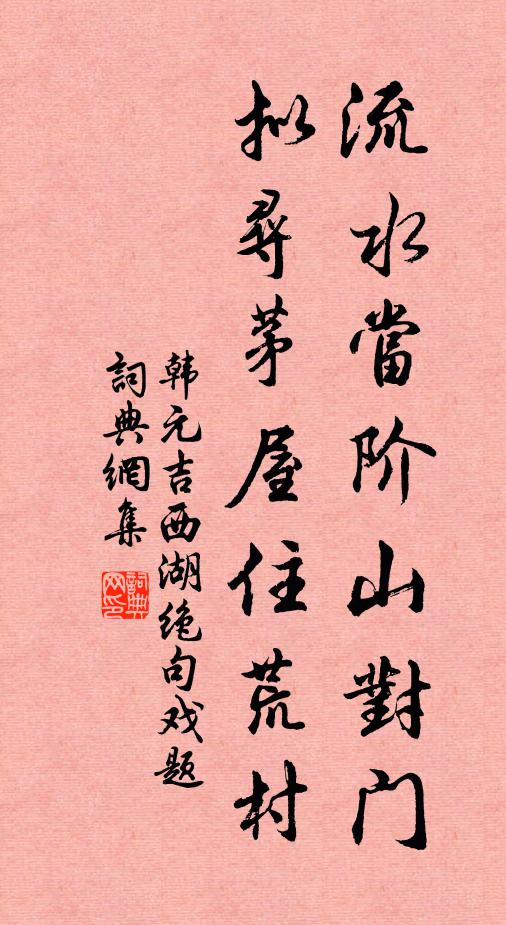 流水當阶山對门
拟尋茅屋住荒村
韩元吉西湖绝句戏题
詞典網集
詞典网印